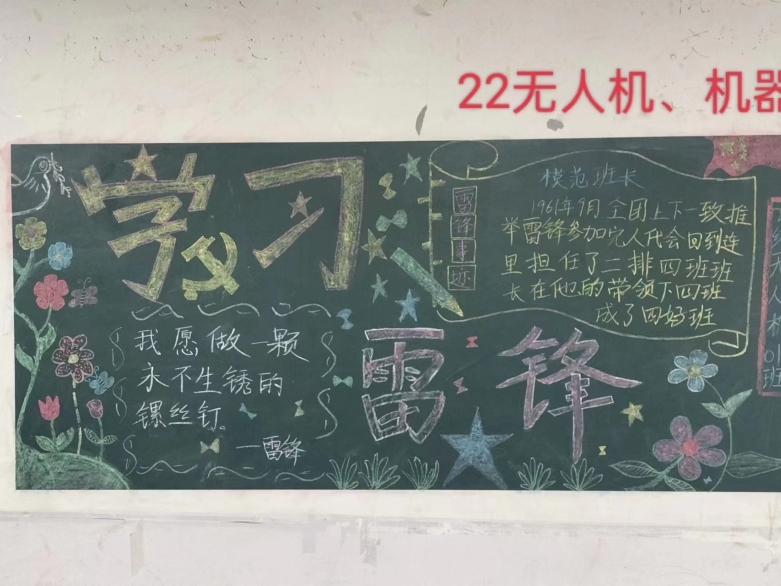 22无人机、机器
学习
雷锋
雷锋事迹
模范班长
1961年9月全团上下一致推
举雷锋参加完人代会回到连
里担任了二排四班班
长在他的带领下四班
成了四好班
我愿做一颗
永不生锈的
镙丝钉。
一雷锋
班